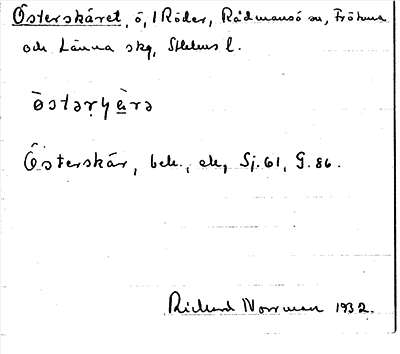 Österskäret, ö, i Röder, Rådmansö sn, Frötuna
och Länna skg, Sthlms l.
östəryärə
Österskär, beb., ek, Sj. 61, G. 86.
Richard Norrman 1932.